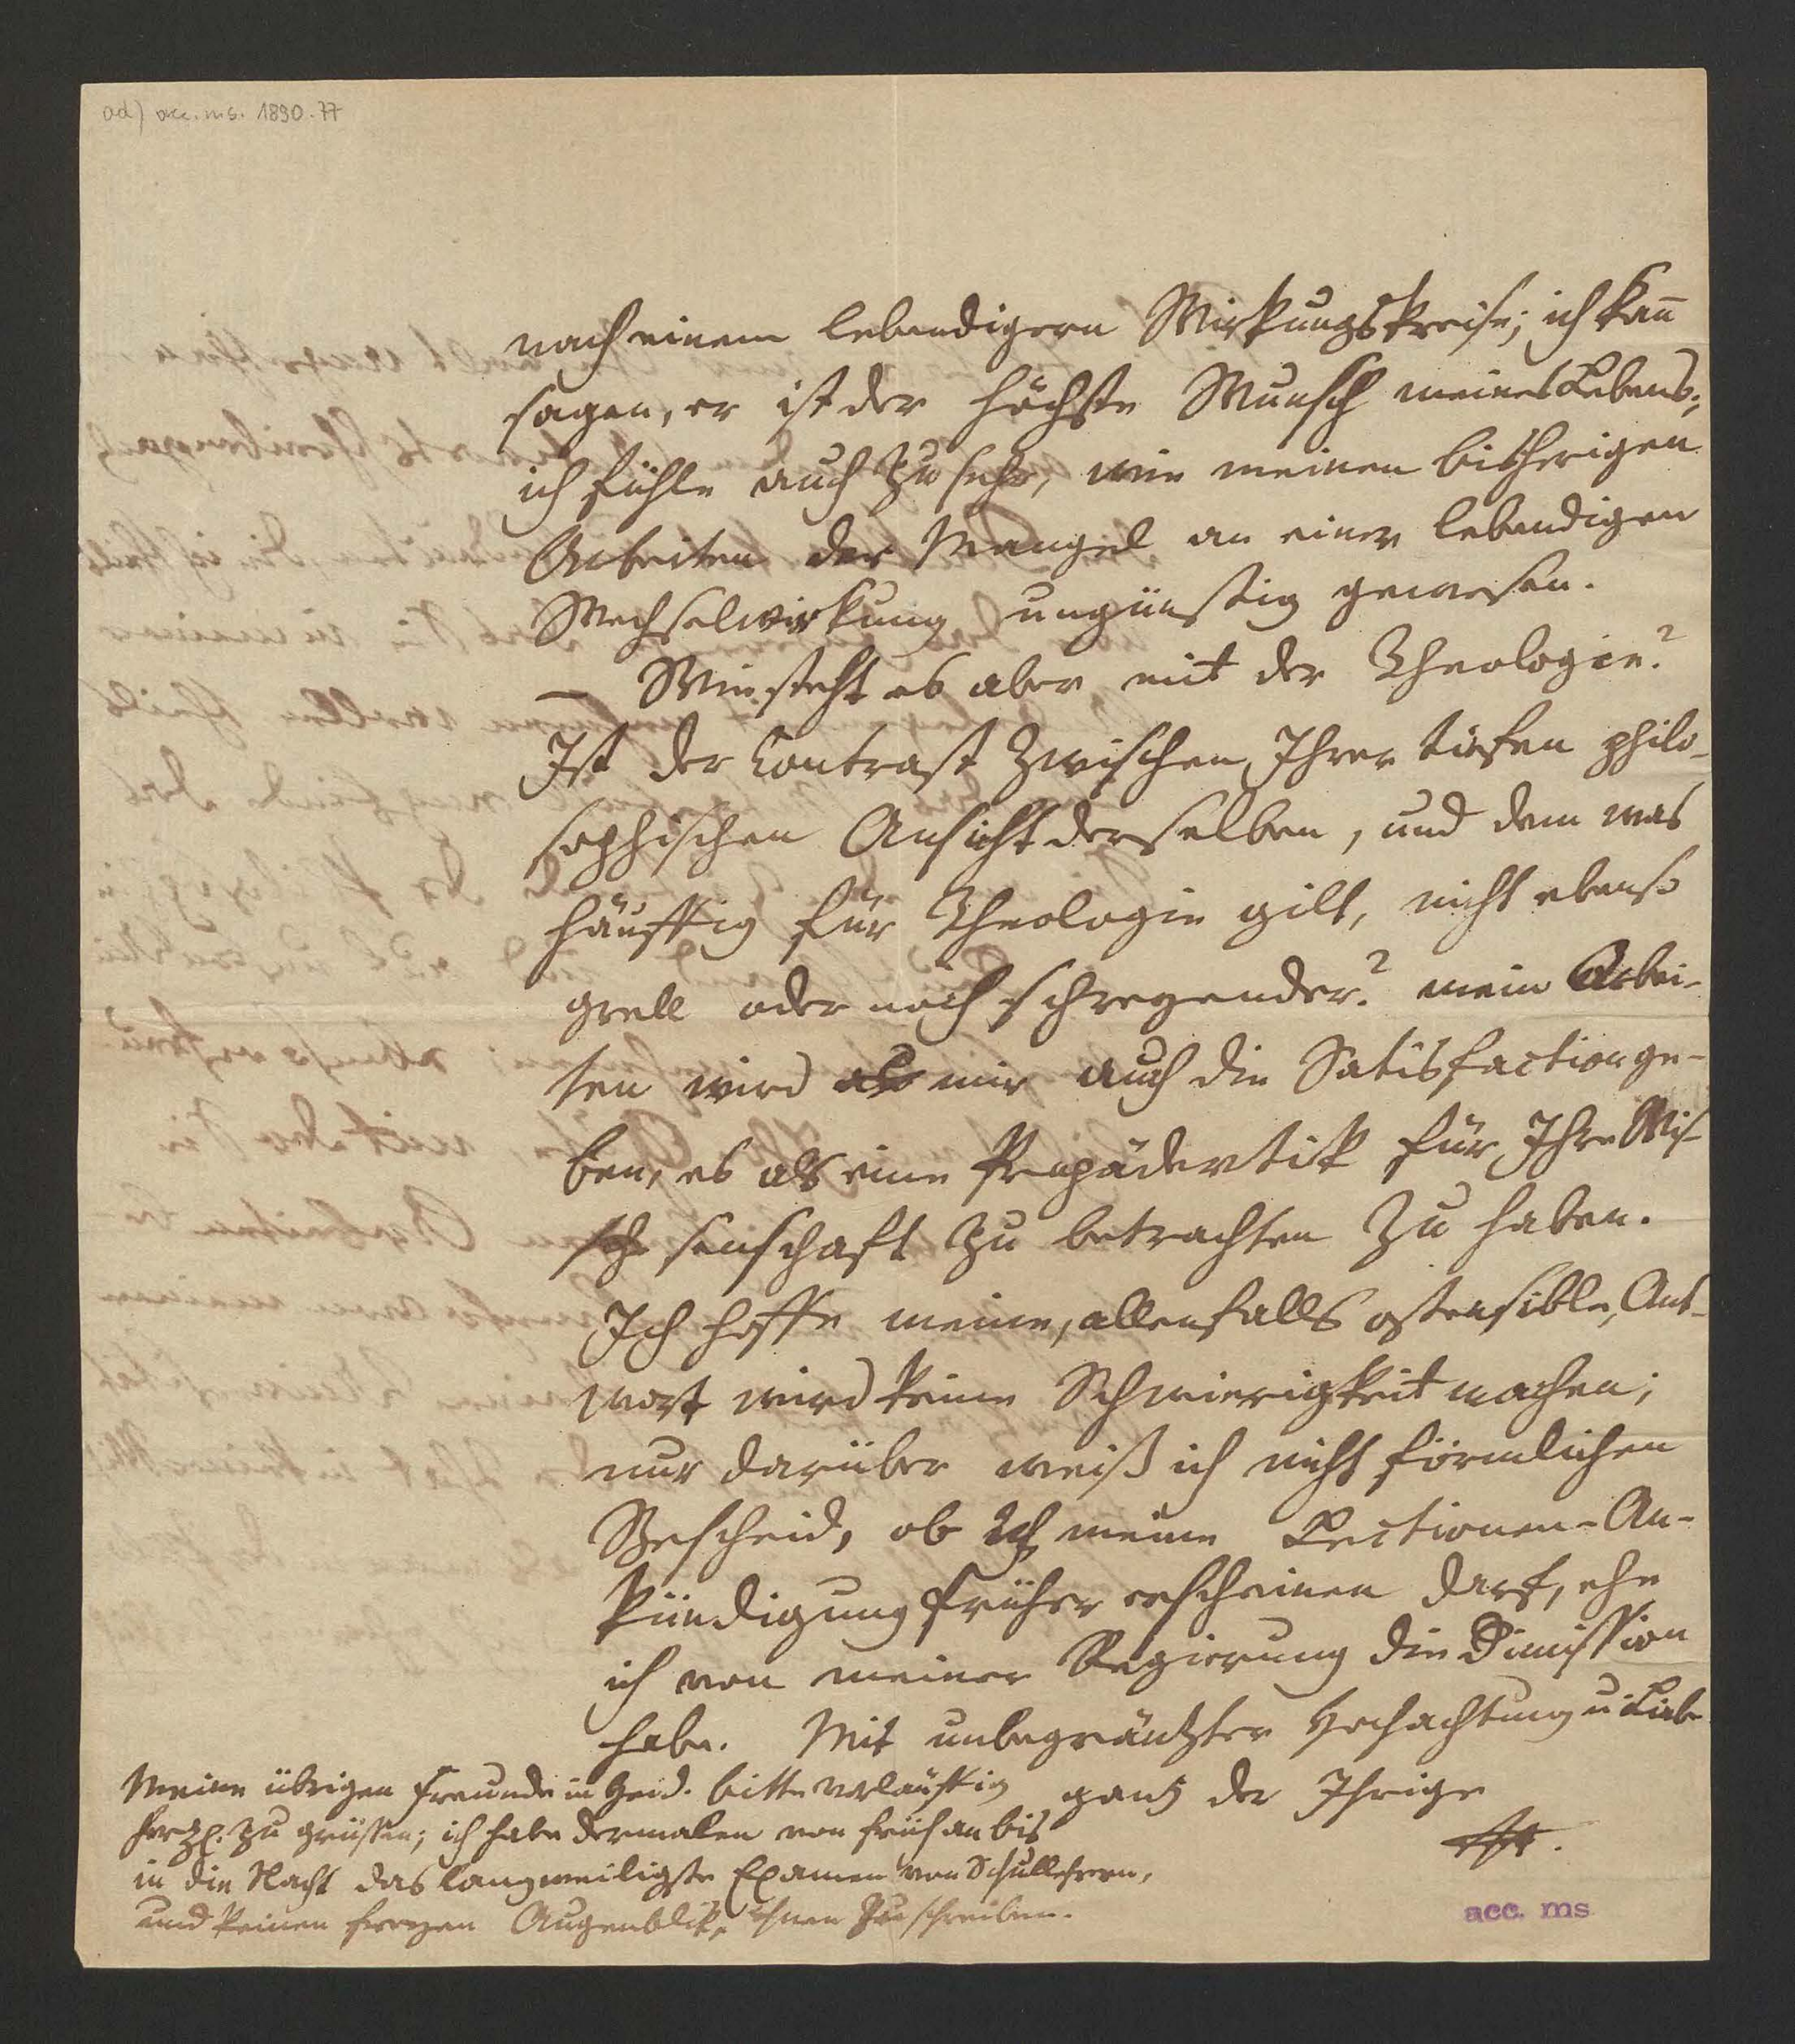 ad) acc. ms. 1890.77
nach einem lebendigern Wirkungskreise; ich kan̄
sagen, er ist der höchste Wunsch meines Lebens;
ich fühle auch zu sehr, wie meinen bisherigen
Arbeiten der Mangel an einer lebendigen
Wechselwirkung ungünstig gewesen.
— Wie steht es aber mit der Theologie?
Ist der Contrast zwischen Ihrer tiefen philo-
sophischen Ansicht derselben, und dem was
häuffig für Theologie gilt, nicht ebenso
grell oder noch schreyender? mein Arbei-
ten wird mir auch die Satisfaction ge-
ben, es als eine Propädevtik für Ihre Wis-
senschaft zu betrachten zu haben.
Ich hoffe meine, allenfalls ostensible, Ant-
wort wird keine Schwierigkeit machen;
nur darüber weiß ich nicht förmlichen
Bescheid, ob meine Lectionen-An-
kündigung früher erscheinen darf, ehe
ich von meiner Regierung die Dimission
habe. Mit unbegränzter Hochachtung u Liebe
ganz der Ihrige
Meine übrigen Freunde in Heid. bitte vorläuffig
herzl. zu grüssen; ich habe dermalen von früh an bis
in die Nacht das langweiligste Examen von Schullehrern,
und keinen freyen Augenblik, ihnen zu schreiben.
acc. ms